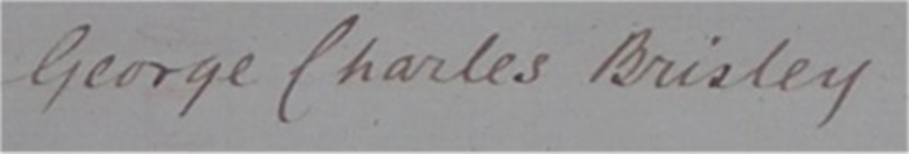 George Charles Brisley